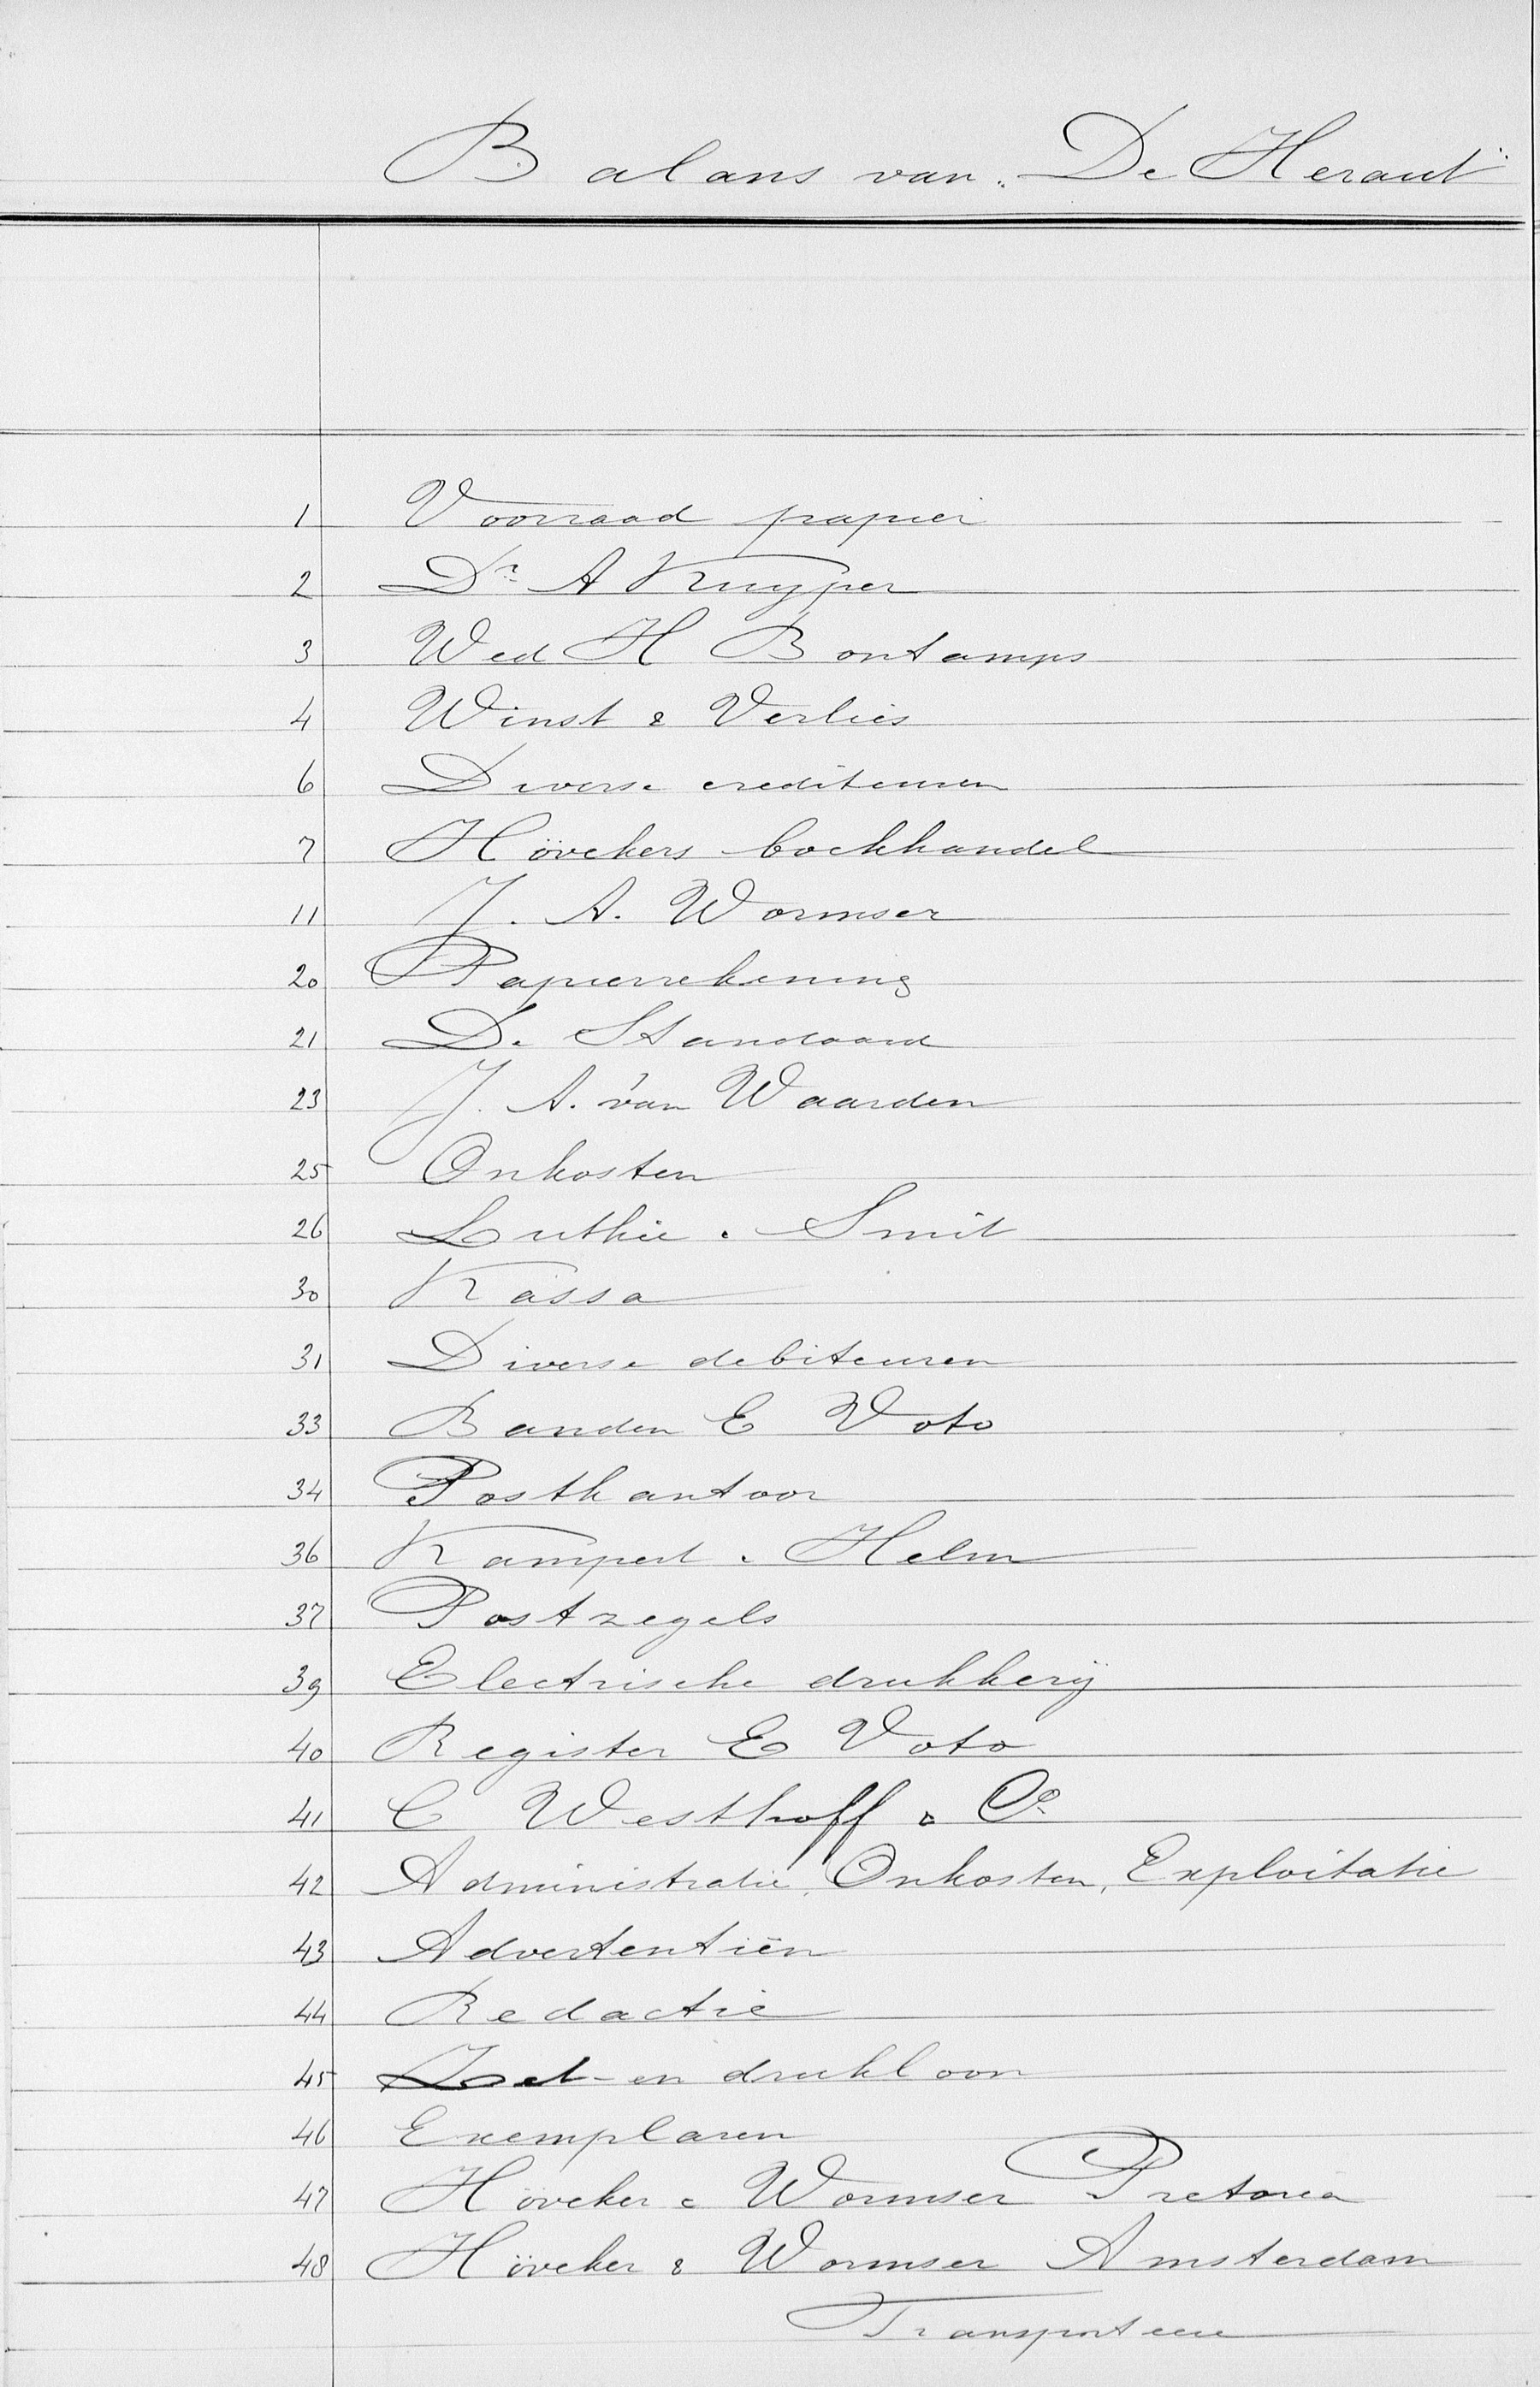 Balans van "De Heraut"
1 Voorraad papier
2 Dr. A Kuyper
3 Wed H Bontamps
4 Winst & Verlies
6 Diverse crediteuren
7 Hövekers boekhandel
11 J. A. Wormser
20 Papierrekening
21 De Standaard
23 J. A. van Waarden
25 Onkosten
26 Luthie & Smit
30 Kassa
31 Diverse debiteuren
33 Banden E Voto
34 Postkantoor
36 Kampert & Helm
37 Postzegels
39 Electrische drukkerij
40 Register E Voto
41 C Westhoff & Co
42 Administratie, Onkosten, Exploitatie
43 Advertentiën
44 Redactie
45 Zet- en drukloon
46 Exemplaren
47 Höveker & Wormser Pretoria
48 Höveker & Wormser Amsterdam
Transporteere